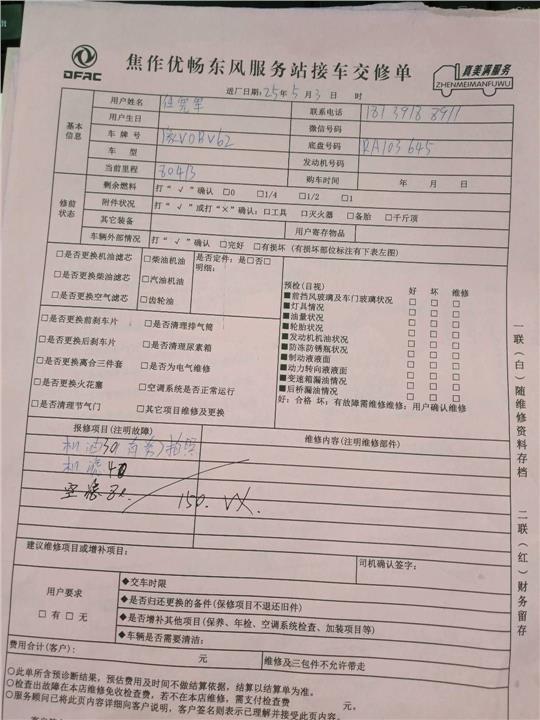 DFAC
焦作优畅东风服务站接车交修单
真美满服务
ZHENMEIMANFUWU
进厂日期:25年5月3日 时
基本信息
用户姓名
联系电话 18139188911
用户生日 微信号码
车牌号 豫V0HV62 底盘号码 RA103645
车型 发动机号码
当前里程 80413 购车时间 年 月 日
修前状态
剩余燃料 打“√”确认 □0 □1/4 □1/2 □1
附件状况 打“√”或打“×”确认:□工具 □灭火器 □备胎 □千斤顶
其它装备 用户寄存物品
车辆外部情况 打“√”确认 □完好 □有损坏(有损坏部位标注有下表左图)
□是否更换机油滤芯 □柴油机油
□是否更换柴油滤芯 □汽油机油
□是否更换空气滤芯 □齿轮油
是否定件:是□否□
明细:
□是否更换前刹车片 □是否清理排气筒
□是否更换后刹车片 □是否清理尿素箱
□是否更换离合三件套 □是否为电气维修
□是否更换火花塞 □空调系统是否正常运行
□是否清理节气门 □其它项目维修及更换
预检(目视) 好 坏 维修
■前挡风玻璃及车门玻璃状况 □ □ □
■灯具情况 □ □ □
■油量状况 □ □ □
■轮胎状况 □ □ □
■发动机机油状况 □ □ □
■防冻防锈瓶状况 □ □ □
■制动液液面 □ □ □
■动力转向液液面 □ □ □
■变速箱漏油情况 □ □ □
■后桥漏油情况 □ □ □
好:合格 坏:有故障需维修维修:用户确认维修
报修项目(注明故障) 维修内容(注明维修部件)
机油30
机滤40
空滤8
150. VX.
建议维修项目或增补项目:
司机确认签字:
用户要求
□有 □无
◆交车时限
◆是否归还更换的备件(保修项目不退还旧件)
◆是否增补其他项目(保养、年检、空调系统检查、加装项目等)
◆车辆是否需要清洁:
费用合计(客户): 元 维修及三包件不允许带走
○此单所含预诊断结果,预估费用及时间不做结算依据,结算以结算单为准。
○检查出故障在本店维修免收检查费,若不在本店维修,需支付检查费 元。
○服务顾问已将此页内容详细向客户说明,客户签名则表示已理解并接受此页内容。
一联(白)随维修资料存档
二联(红)财务留存